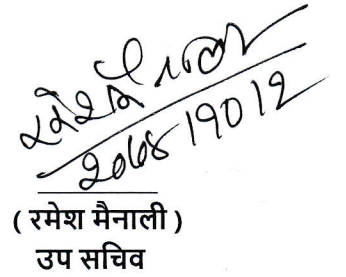 २०७४।१०।२
( रमेश मैनाली )
उप सचिव